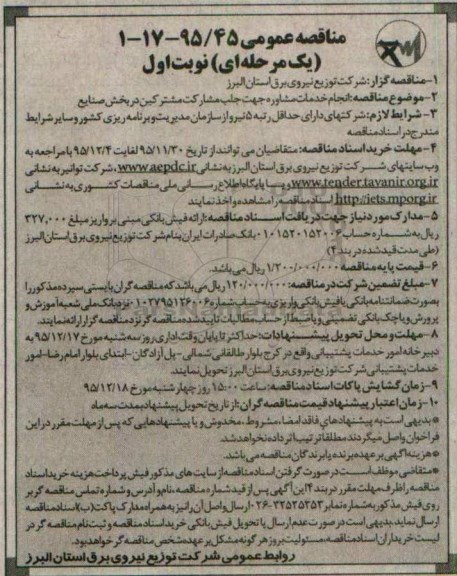 مناقصه عمومی ۹۵/۴۵-۱۷-۱
(یک مرحله‌ای) نوبت اول
۱-مناقصه گزار: شرکت توزیع نیروی برق استان البرز
۲-موضوع مناقصه: انجام خدمات مشاوره جهت جلب مشارکت مشترکین در بخش صنایع
۳-شرایط لازم: شرکتهای دارای حداقل رتبه ۵ نیرو از سازمان مدیریت و برنامه ریزی کشور و سایر شرایط
مندرج در اسناد مناقصه
۴-مهلت خرید اسناد مناقصه: متقاضیان می توانند از تاریخ ۹۵/۱۱/۳۰ لغایت ۹۵/۱۲/۴ با مراجعه به
وب سایتهای شرکت توزیع نیروی برق استان البرز به نشانی www.aepdc.ir، شرکت توانیر به نشانی
www.tender.tavanir.org.ir و یا پایگاه اطلاع رسانی ملی مناقصات کشوری به نشانی
http://iets.mporg.ir اسناد مناقصه را مشاهده و اخذ نمایند
۵-مدارک مورد نیاز جهت دریافت اسناد مناقصه: ارائه فیش بانکی مبنی بر واریز مبلغ ۳۲۷,۰۰۰
ریال به شماره حساب ۰۱۰۱۵۲۰۱۵۲۰۰۶ بانک صادرات ایران بنام شرکت توزیع نیروی برق استان البرز
(طی مدت قید شده در بند ۴)
۶-قیمت پایه مناقصه ۱/۲۰۰/۰۰۰/۰۰۰ ریال می باشد.
۷-مبلغ تضمین شرکت در مناقصه: ۱۲۰/۰۰۰/۰۰۰ ریال می باشد که مناقصه گران بایستی سپرده مذکور را
بصورت ضمانتنامه بانکی یا فیش بانکی واریزی به حساب شماره ۰۱۰۲۷۹۵۱۲۶۰۰۶ نزد بانک ملی شعبه آموزش و
پرورش و یا چک بانکی تضمینی و یا ضبط از حساب مطالبات تایید شده مناقصه گر نزد مناقصه گزار ارائه نمایند.
۸-مهلت و محل تحویل پیشنهادات: حداکثر تا پایان وقت اداری روز سه شنبه مورخ ۹۵/۱۲/۱۷ به
دبیرخانه امور خدمات پشتیبانی واقع در کرج بلوار طالقانی شمالی-پل آزادگان-ابتدای بلوار امام رضا-امور
خدمات پشتیبانی شرکت توزیع نیروی برق استان البرز تحویل نمایند.
۹-زمان گشایش پاکات اسناد مناقصه: ساعت ۱۵:۰۰ روز چهارشنبه مورخ ۹۵/۱۲/۱۸
۱۰-زمان اعتبار پیشنهاد قیمت مناقصه گران: از تاریخ تحویل پیشنهاد بمدت سه ماه
*بدیهی است به پیشنهادهای فاقد امضاء، مشروط، مخدوش و یا پیشنهادهایی که پس از مهلت مقرر در این
فراخوان واصل میگردند مطلقا ترتیب اثر داده نخواهد شد.
*هزینه آگهی بر عهده برنده یا برندگان مناقصه می باشد.
*متقاضی موظف است در صورت گرفتن اسناد مناقصه از سایت های مذکور فیش پرداخت هزینه خرید اسناد
مناقصه را ظرف مهلت مقرر در بند ۴ این آگهی پس از قید شماره مناقصه، نام و آدرس و شماره تماس مناقصه گر بر
روی فیش مذکور به شماره نمابر ۳۲۵۲۵۳۵۳-۰۲۶ ارسال و اصل آن را نیز به همراه مدارک پاکت (ب) اسناد مناقصه
ارسال نماید. بدیهی است در صورت عدم ارسال یا تحویل فیش بانکی خرید اسناد مناقصه و ثبت نام مناقصه گر در
لیست خریداران اسناد مناقصه، مسئولیت بروز هر گونه مشکل بر عهده شخص مناقصه گر خواهد بود.
روابط عمومی شرکت توزیع نیروی برق استان البرز